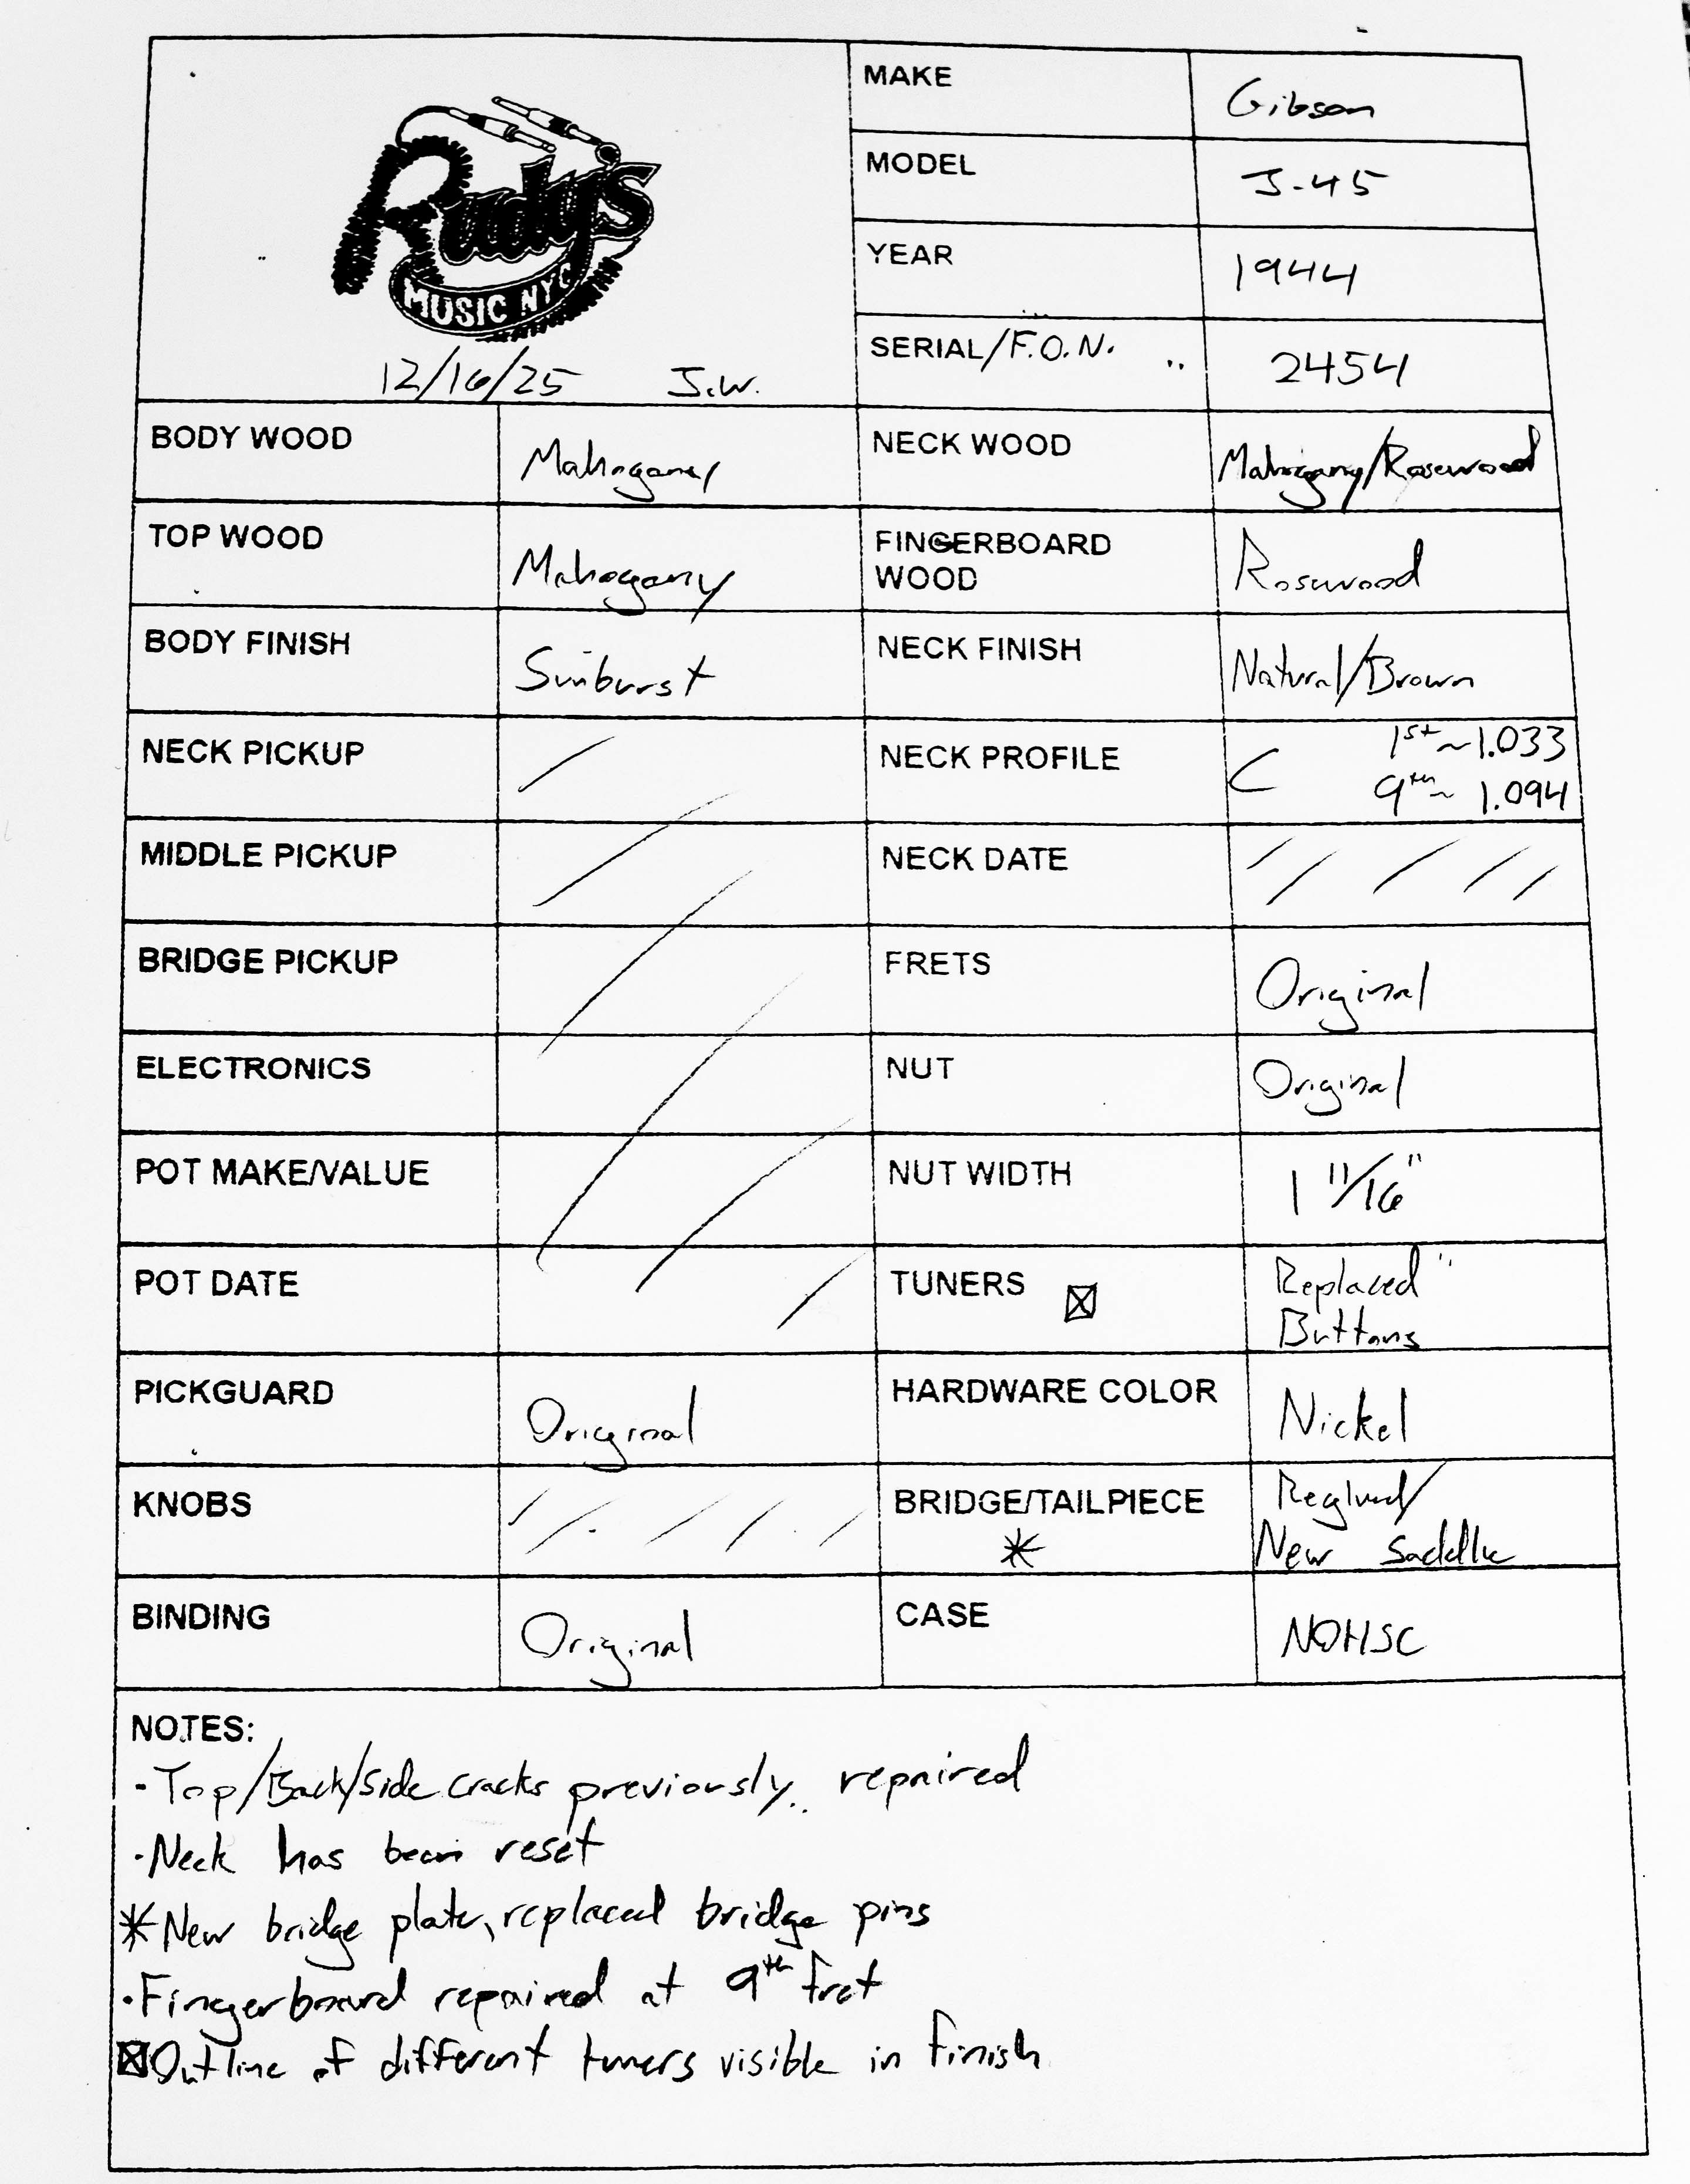 Rudy's
MUSIC NYC
12/16/25 J.W.
MAKE Gibson
MODEL J-45
YEAR 1944
SERIAL/F.O.N. 2454
BODY WOOD Mahogany
NECK WOOD Mahogany/Rosewood
TOP WOOD Mahogany
FINGERBOARD
WOOD Rosewood
BODY FINISH Sunburst
NECK FINISH Natural/Brown
NECK PICKUP
NECK PROFILE C 1st ~1.033
9th ~ 1.094
MIDDLE PICKUP
NECK DATE
BRIDGE PICKUP
FRETS Original
ELECTRONICS
NUT Original
POT MAKE/VALUE
NUT WIDTH 1 11/16"
POT DATE
TUNERS ☒ Replaced
Buttons
PICKGUARD Original
HARDWARE COLOR Nickel
KNOBS
BRIDGE/TAILPIECE * Reglued/
New saddle
BINDING Original
CASE NOHSC
NOTES:
·Top/Back/Side cracks previously repaired
·Neck has been reset
*New bridge plate, replaced bridge pins
·Fingerboard repaired at 9th fret
☒Outline of different tuners visible in finish